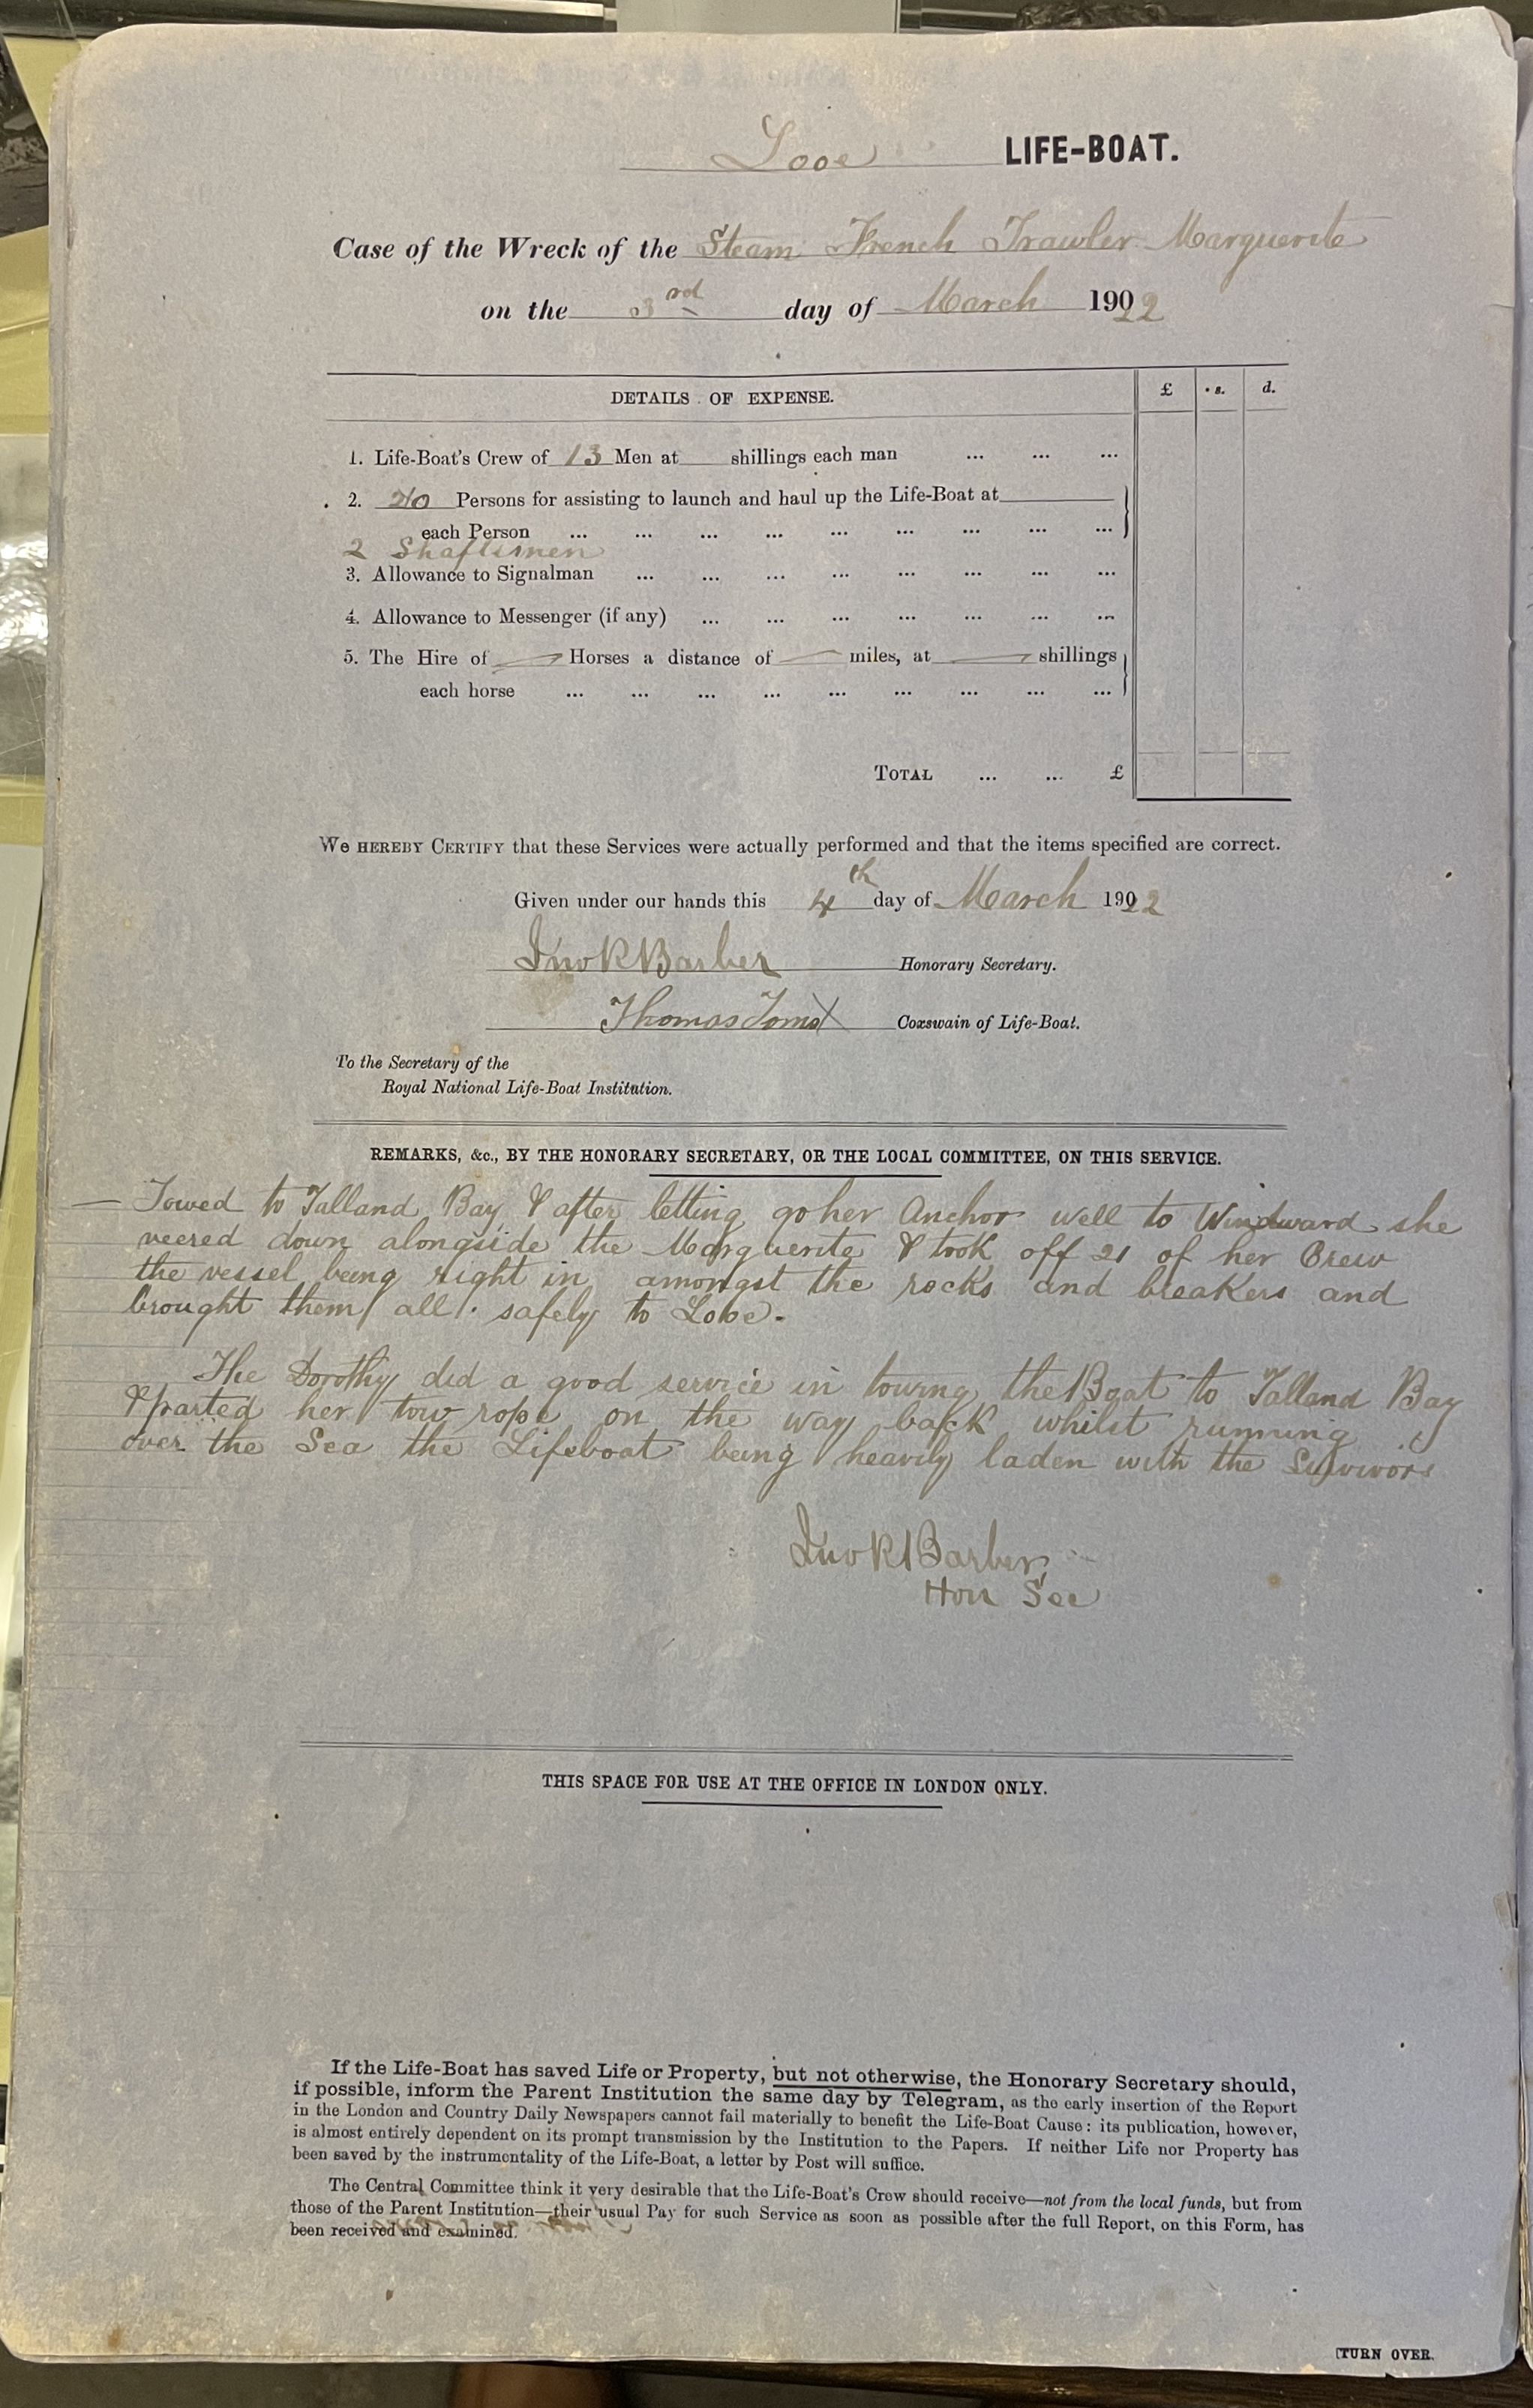 Looe LIFE-BOAT.
Case of the Wreck of the Steam French Trawler Marguerite
on the 3rd day of March 1922
DETAILS OF EXPENSE. £ s. d.
1. Life-Boat's Crew of 13 Men at shillings each man ... ... ...
2. 20 Persons for assisting to launch and haul up the Life-Boat at
each Person ... ... ... ... ... ... ... ... ...
2 Shaftsmen
3. Allowance to Signalman ... ... ... ... ... ... ... ...
4. Allowance to Messenger (if any) ... ... ... ... ... ... ...
5. The Hire of Horses a distance of miles, at shillings
each horse ... ... ... ... ... ... ... ... ...
TOTAL ... ... £
We HEREBY CERTIFY that these Services were actually performed and that the items specified are correct.
Given under our hands this 4th day of March 1922
Jno R Barber Honorary Secretary.
Thomas Toms X Coxswain of Life-Boat.
To the Secretary of the
Royal National Life-Boat Institution.
REMARKS, &c., BY THE HONORARY SECRETARY, OR THE LOCAL COMMITTEE, ON THIS SERVICE.
— Towed to Talland Bay & after letting go her Anchor well to Windward she
veered down alongside the Marguerite & took off 21 of her Crew
the vessel being right in amongst the rocks and breakers and
brought them all safely to Looe.
The Dorothy did a good service in towing the Boat to Talland Bay
& parted her tow rope on the way back whilst running
over the Sea the Lifeboat being heavily laden with the Survivors
Jno R Barber
Hon Sec
THIS SPACE FOR USE AT THE OFFICE IN LONDON ONLY.
If the Life-Boat has saved Life or Property, but not otherwise, the Honorary Secretary should,
if possible, inform the Parent Institution the same day by Telegram, as the early insertion of the Report
in the London and Country Daily Newspapers cannot fail materially to benefit the Life-Boat Cause: its publication, however,
is almost entirely dependent on its prompt transmission by the Institution to the Papers. If neither Life nor Property has
been saved by the instrumentality of the Life-Boat, a letter by Post will suffice.
The Central Committee think it very desirable that the Life-Boat's Crew should receive—not from the local funds, but from
those of the Parent Institution—their usual Pay for such Service as soon as possible after the full Report, on this Form, has
been received and examined.
[TURN OVER.